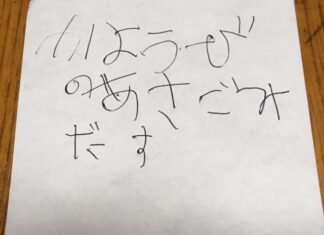 かようび
のあさごみ
だす